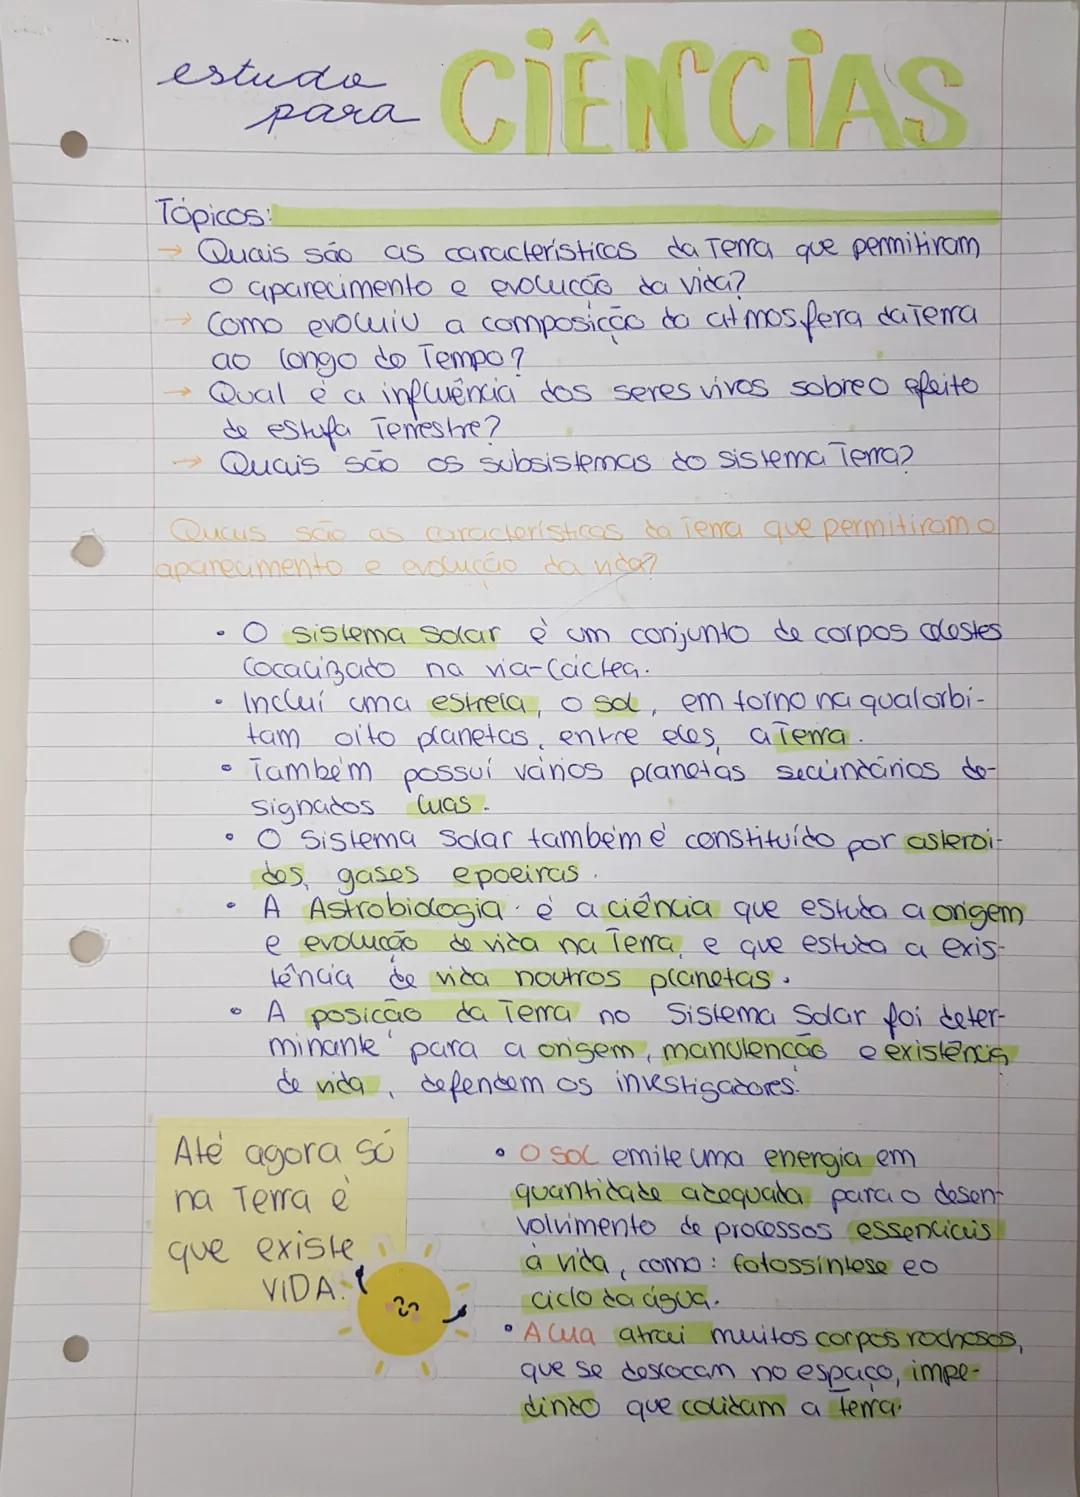 estudo
para CIÊNCIAS
Tópicos:
→ Quais são as características da Terra que permitiram
o aparecimento e evolução da vida?
→ Como evoluiu a composição da atmosfera da Terra
ao longo do Tempo?
→ Qual é a influência dos seres vivos sobre o efeito
de estufa Terrestre?
→ Quais são os subsistemas do sistema Terra?
Quais são as características da Terra que permitiram o
aparecimento e evolução da vida?
• O sistema solar é um conjunto de corpos celestes
localizado na via-láctea.
• Incluí uma estrela, o sol, em torno na qual orbi-
tam oito planetas, entre eles, a Terra.
• Também possuí vários planetas secundários de-
signados luas.
• O Sistema Solar também é constituído por asteroi-
des, gases e poeiras.
• A Astrobiologia é a ciência que estuda a origem
e evolução de vida na Terra, e que estuda a exis-
tência de vida noutros planetas.
• A posição da Terra no Sistema Solar foi deter-
minante para a origem, manutenção e existência
de vida, defendem os investigadores.
Até agora só
na Terra é
que existe
VIDA.
• O sol emite uma energia em
quantidade adequada para o desen-
volvimento de processos essenciais
à vida, como: fotossíntese e o
ciclo da água.
• A lua atrai muitos corpos rochosos,
que se deslocam no espaço, impe-
dindo que colidam a Terra.